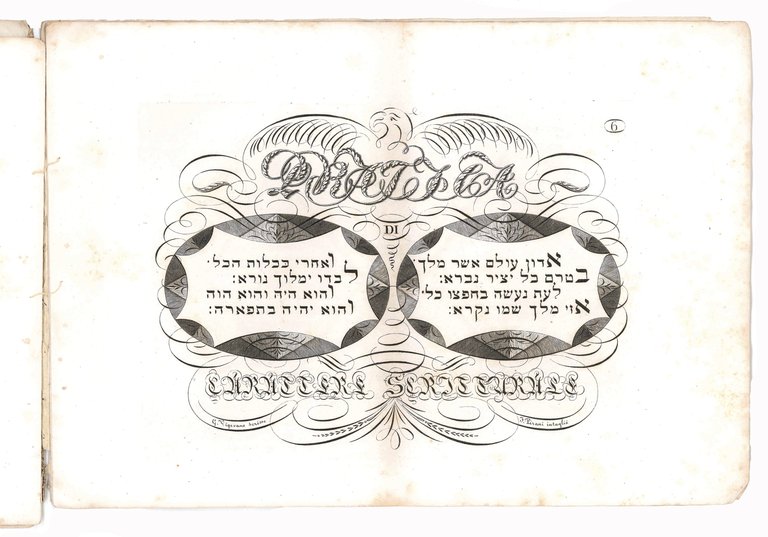 6
PRATICA
DI
אדון עולם אשר מלך
בטרם כל יציר נברא:
לעת נעשה בחפצו כל
אזי מלך שמו נקרא:
ואחרי ככלות הכל
לבדו ימלוך נורא:
והוא היה והוא הוה
והוא יהיה בתפארה:
CARATTERE SCRITTURALE
G. Vigevano scrisse
F. Pirani intagliò